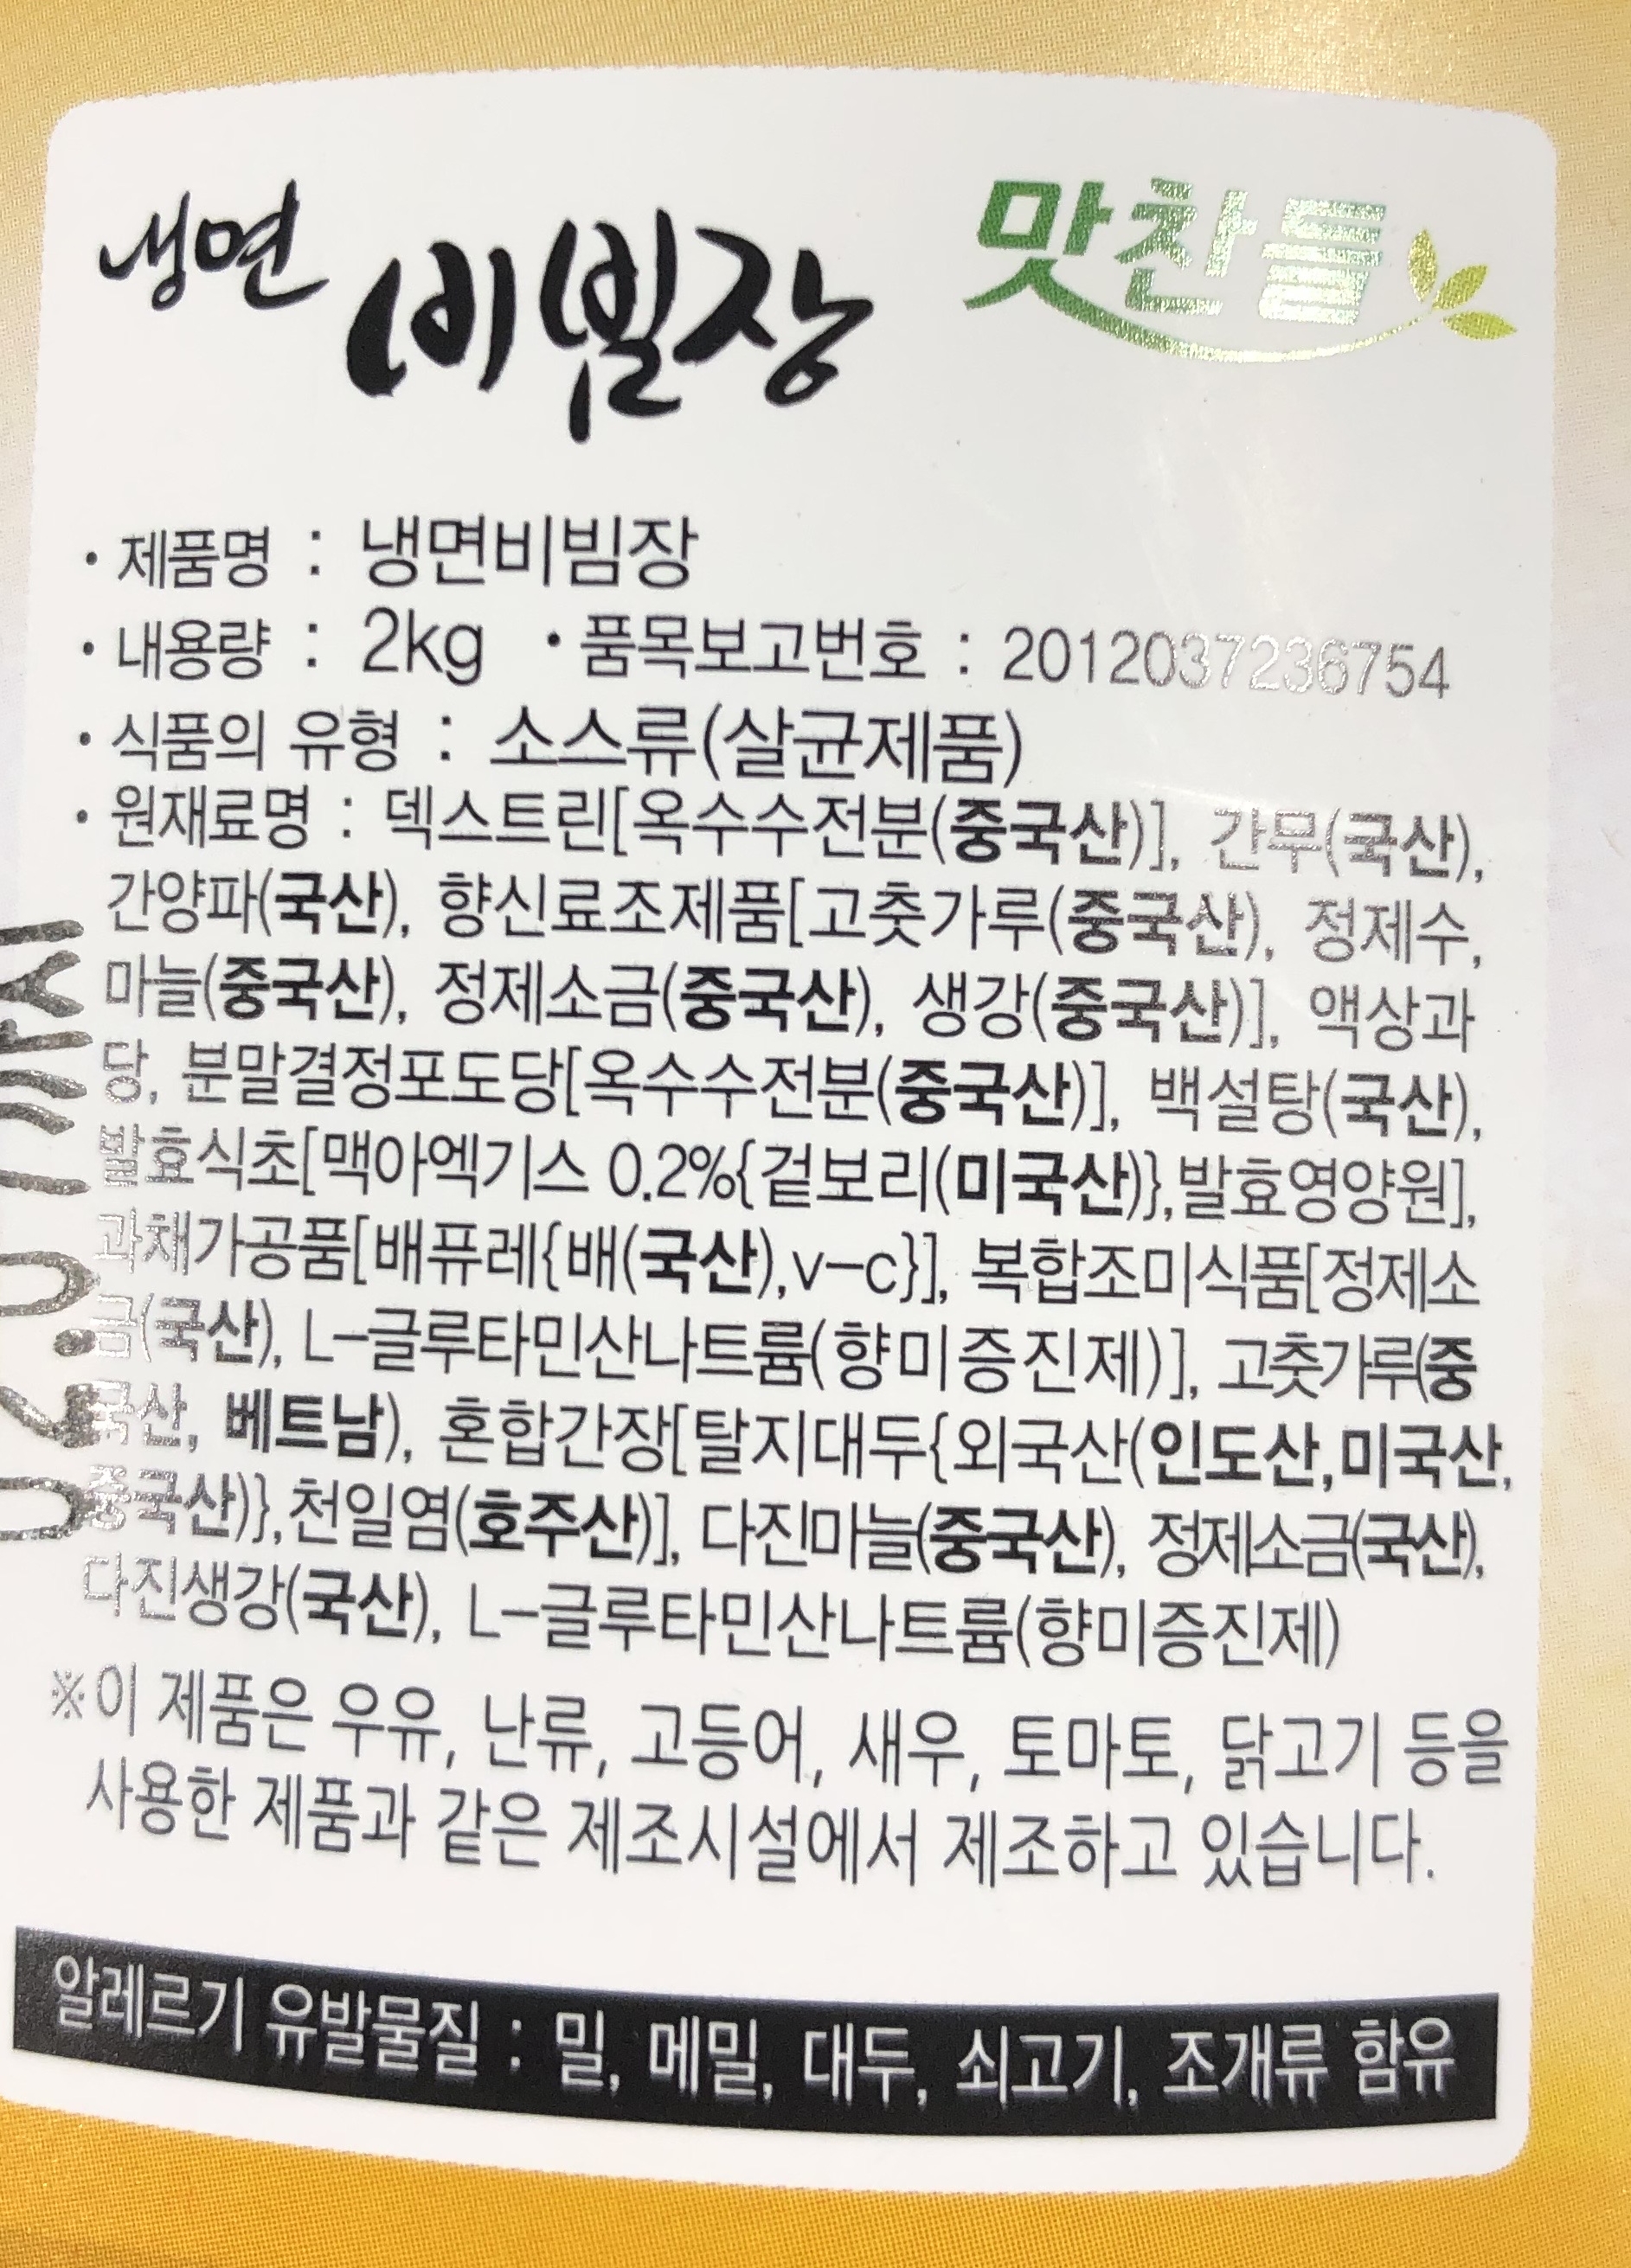 냉면 비빔장 맛찬들
· 제품명 : 냉면비빔장
· 내용량 : 2kg · 품목보고번호 : 2012037236754
· 식품의 유형 : 소스류(살균제품)
· 원재료명 : 덱스트린[옥수수전분(중국산)], 간무(국산),
간양파(국산), 향신료조제품[고춧가루(중국산), 정제수,
마늘(중국산), 정제소금(중국산), 생강(중국산)], 액상과
당, 분말결정포도당[옥수수전분(중국산)], 백설탕(국산),
발효식초[맥아엑기스 0.2%{겉보리(미국산)},발효영양원],
과채가공품[배퓨레{배(국산),v-c}], 복합조미식품[정제소
금(국산), L-글루타민산나트륨(향미증진제)], 고춧가루(중
국산, 베트남), 혼합간장[탈지대두{외국산(인도산,미국산,
중국산)},천일염(호주산)], 다진마늘(중국산), 정제소금(국산),
다진생강(국산), L-글루타민산나트륨(향미증진제)
※이 제품은 우유, 난류, 고등어, 새우, 토마토, 닭고기 등을
사용한 제품과 같은 제조시설에서 제조하고 있습니다.
알레르기 유발물질 : 밀, 메밀, 대두, 쇠고기, 조개류 함유